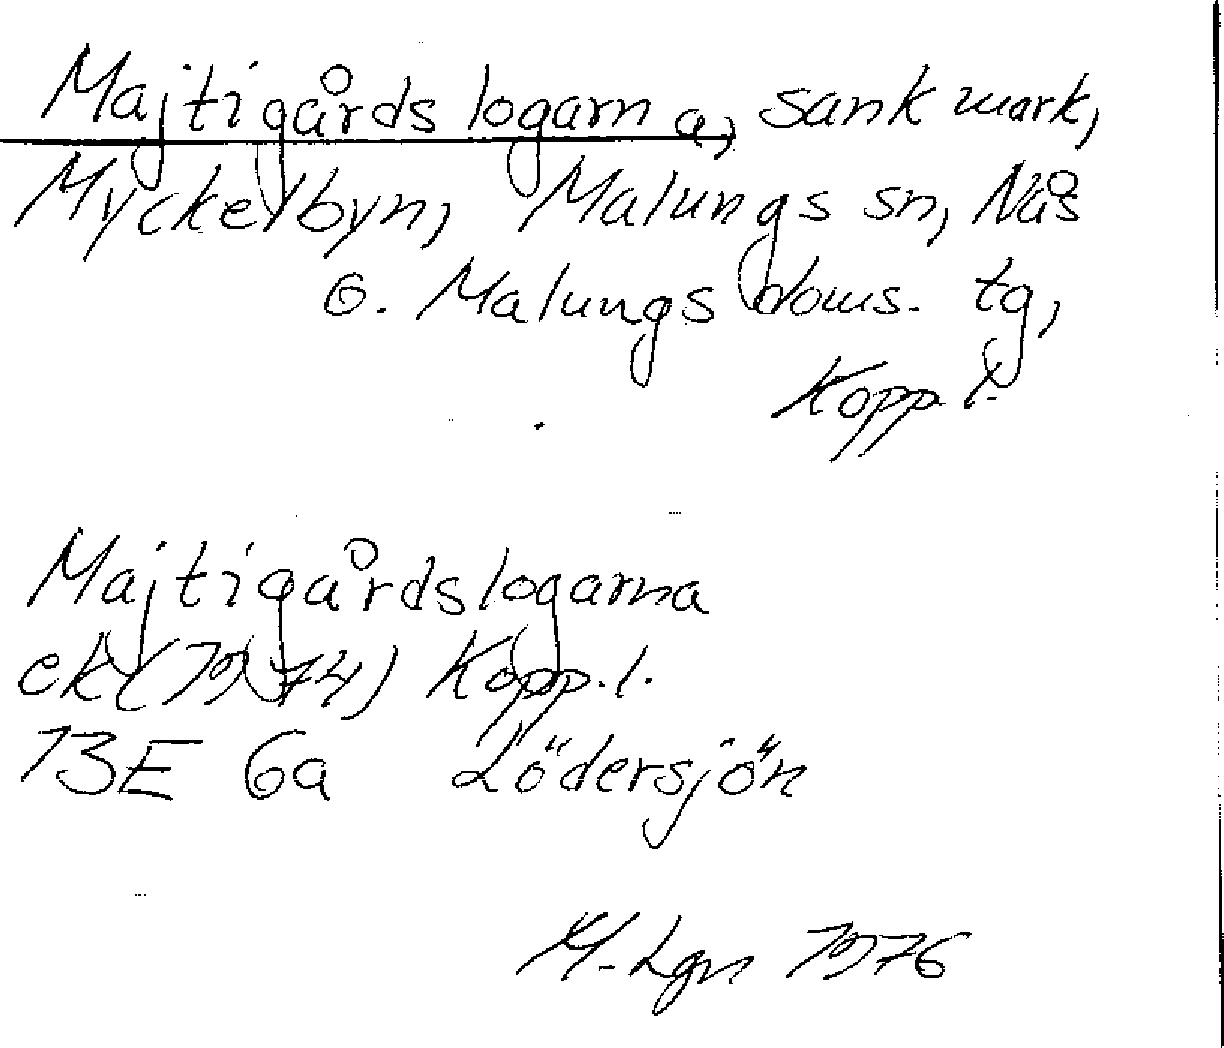 Majtigårdslogarna, sank mark,
Myckelbyn, Malungs sn, Nås
o. Malungs doms. tg,
Kopp. l.
Majtigårdslogarna
ek (1974) Kopp. l.
13E 6a Lödersjön
M. Lgn 1976